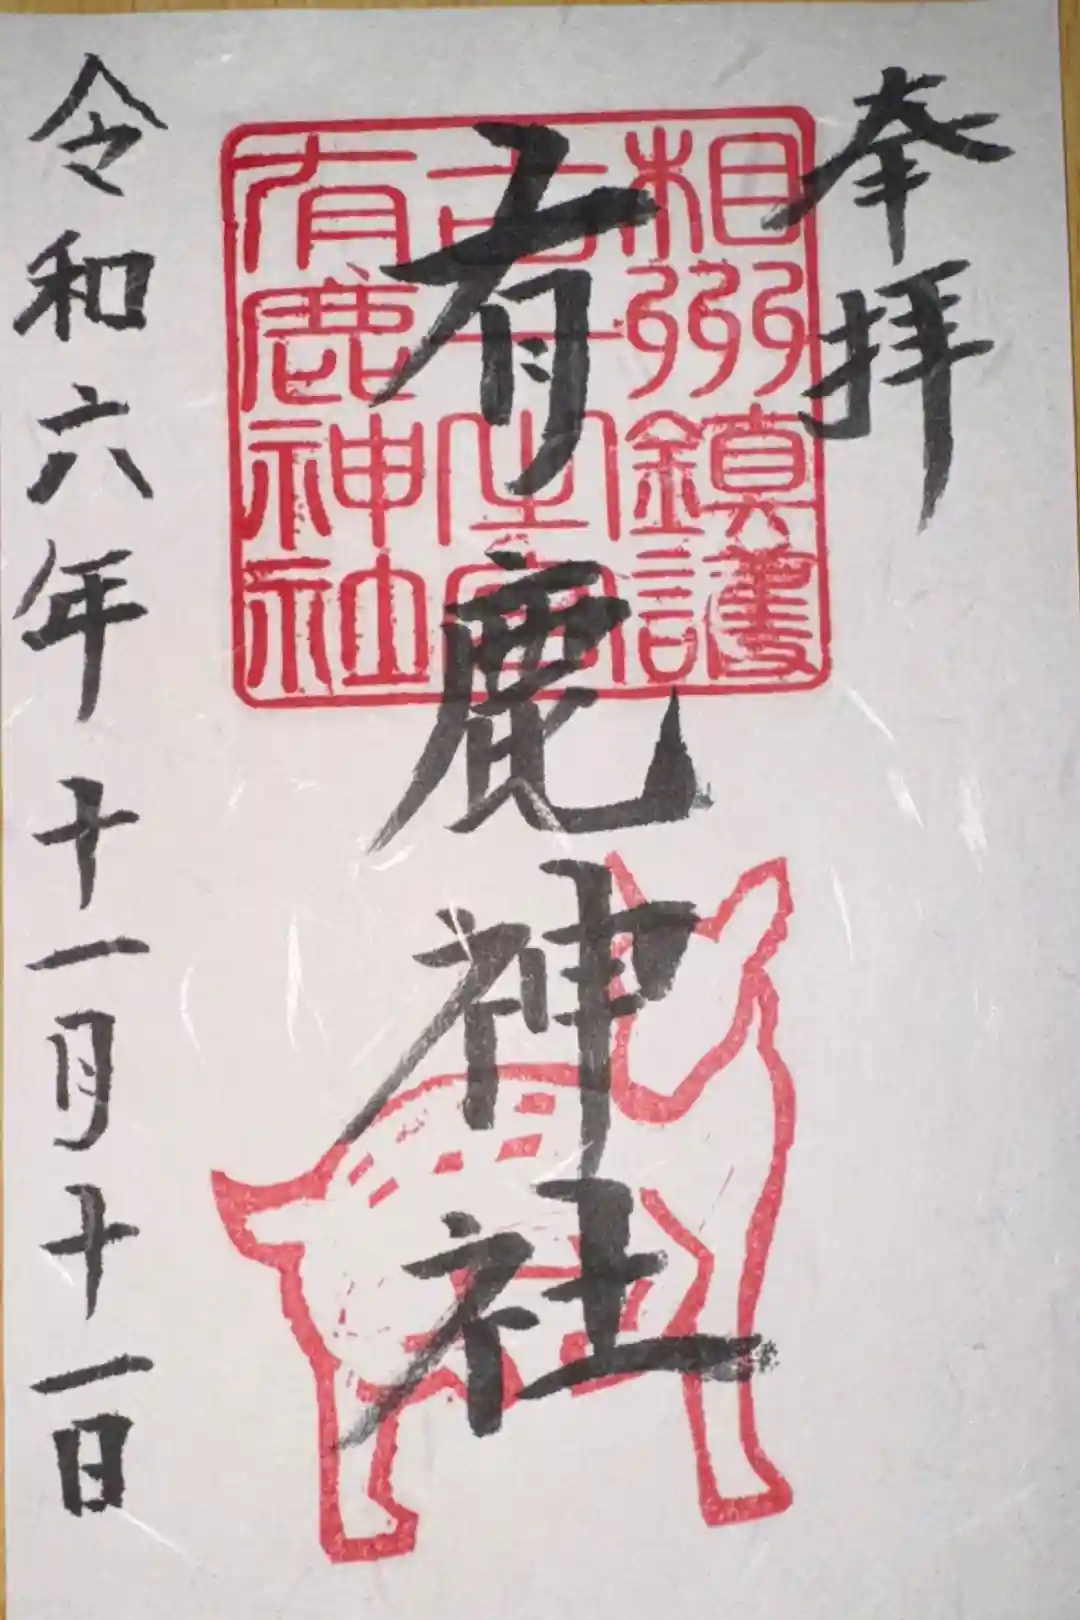 奉拝
相州鎮護
有鹿神社
有鹿神社
令和六年十一月十一日